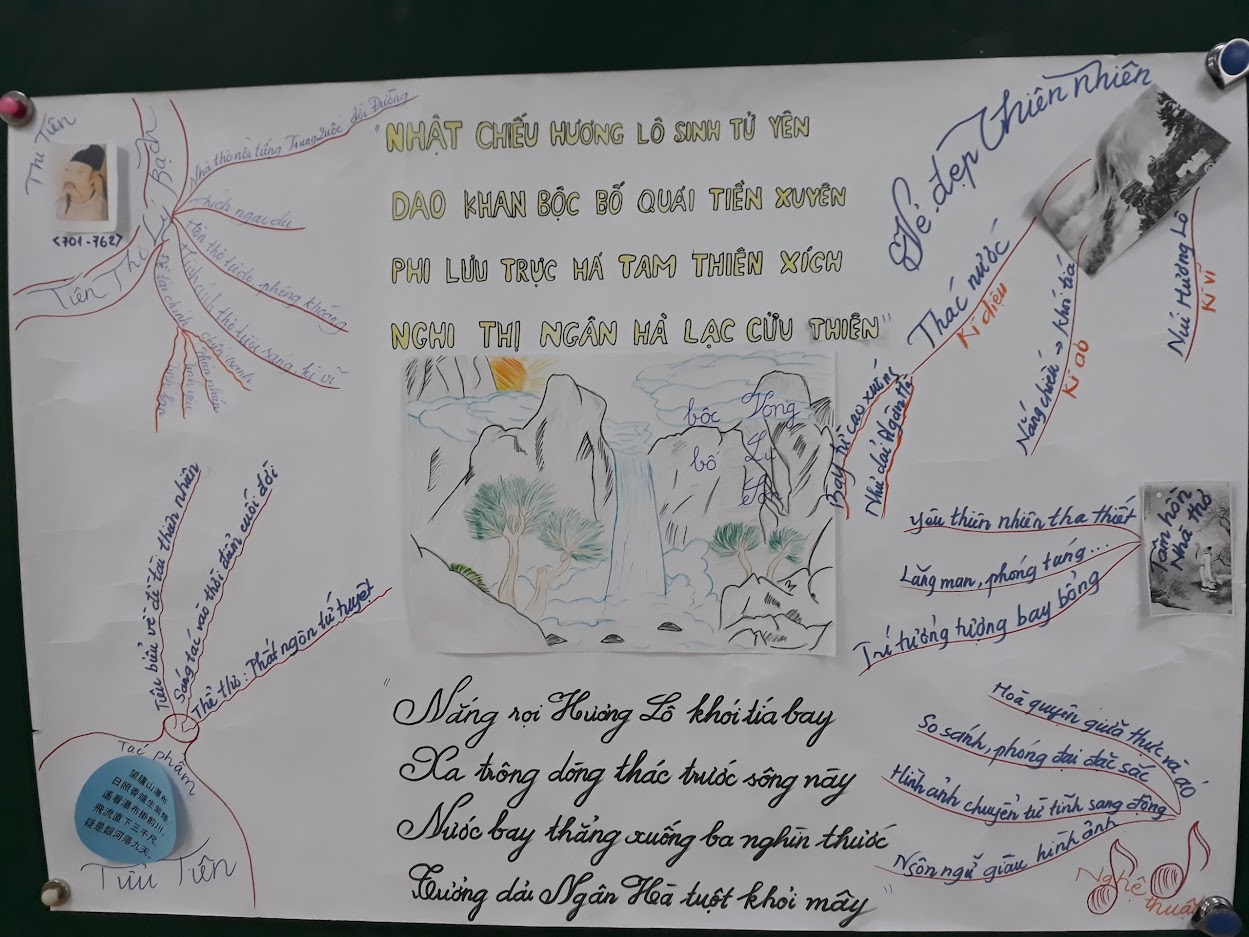 Thi Tiên
<701-762>
Tiên Thơ
Lý Bạch
Nhà thơ nổi tiếng Trung Quốc đời Đường
Thích ngao du
Hồn thơ tự do phóng khoáng
Hình ảnh thơ tươi sáng, kì vĩ
Đề tài chính
chiến tranh
thiên nhiên
tình yêu
"NHẬT CHIẾU HƯƠNG LÔ SINH TỬ YÊN
DAO KHAN BỘC BỐ QUẢI TIỀN XUYÊN
PHI LƯU TRỰC HÁ TAM THIÊN XÍCH
NGHI THỊ NGÂN HÀ LẠC CỬU THIÊN"
Vọng
Lư
Sơn
bộc
bố
Vẻ đẹp thiên nhiên
Thác nước
Kì diệu
Bay từ cao xuống
Như dải Ngân Hà
Nắng chiếu → khói tía
Kì ảo
Núi Hương Lô
Kì vĩ
Tâm hồn
Nhà thơ
Yêu thiên nhiên tha thiết
Lãng mạn, phóng túng...
Trí tưởng tượng bay bổng
Tiêu biểu về đề tài thiên nhiên
Sáng tác vào thời điểm cuối đời
Thể thơ: Thất ngôn tứ tuyệt
Tác phẩm
望廬山瀑布
日照香爐生紫煙
遙看瀑布掛前川。
飛流直下三千尺
疑是銀河落九天。
Tửu Tiên
"Nắng rọi Hương Lô khói tía bay
Xa trông dòng thác trước sông này
Nước bay thẳng xuống ba nghìn thước
Tưởng dải Ngân Hà tuột khỏi mây"
Hoà quyện giữa thực và ảo
So sánh, phóng đại đặc sắc
Hình ảnh chuyển từ tĩnh sang động
Ngôn ngữ giàu hình ảnh
Nghệ thuật